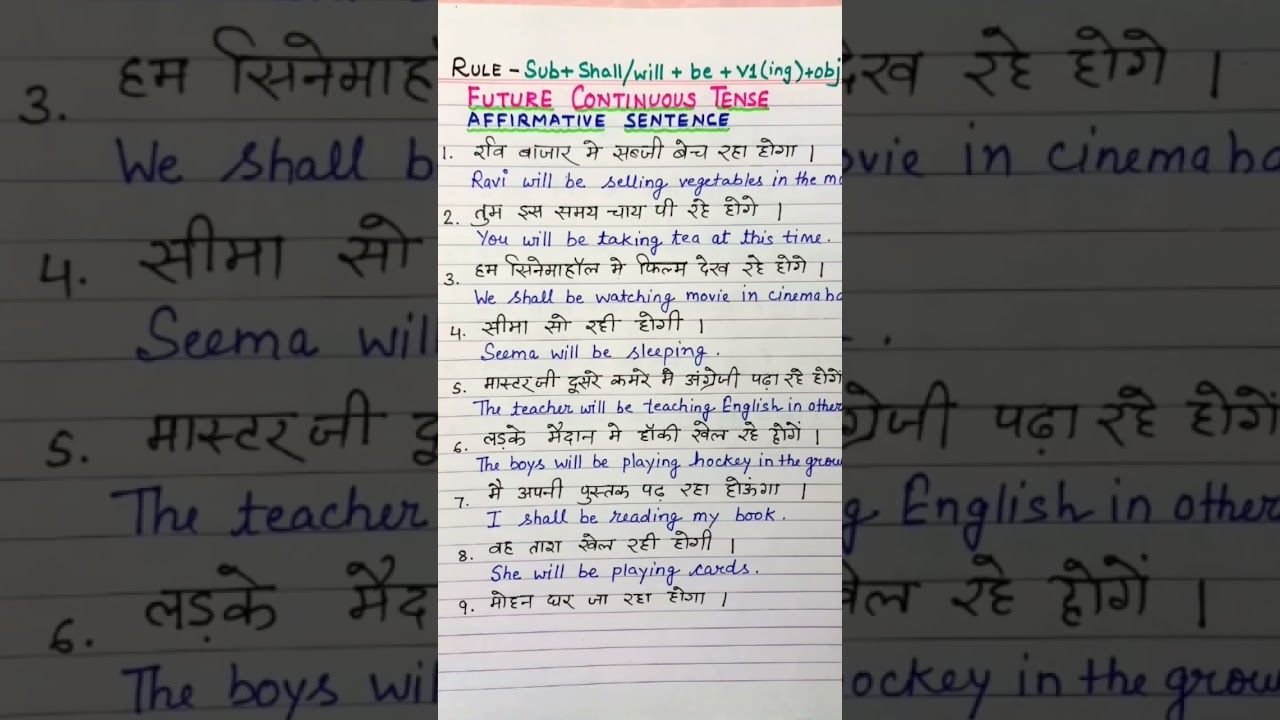 RULE - Sub + Shall/will + be + V1(ing)+obj
FUTURE CONTINUOUS TENSE
AFFIRMATIVE SENTENCE
1. रवि बाजार मे सब्जी बेच रहा होगा ।
Ravi will be selling vegetables in the
2. तुम इस समय चाय पी रहे होगे ।
You will be taking tea at this time.
3. हम सिनेमाहॉल मे फिल्म देख रहे होगे ।
We shall be watching movie in cinema
4. सीमा सो रही होगी ।
Seema will be sleeping.
5. मास्टर जी दूसरे कमरे मै अंग्रेजी पढ़ा रहे होगें
The teacher will be teaching English in other
6. लड़के मैदान मे हॉकी खेल रहे होगें ।
The boys will be playing hockey in the
7. मै अपनी पुस्तक पढ़ रहा होऊंगा ।
I shall be reading my book.
8. वह ताश खेल रही होगी ।
She will be playing cards.
9. मोहन घर जा रहा होगा ।